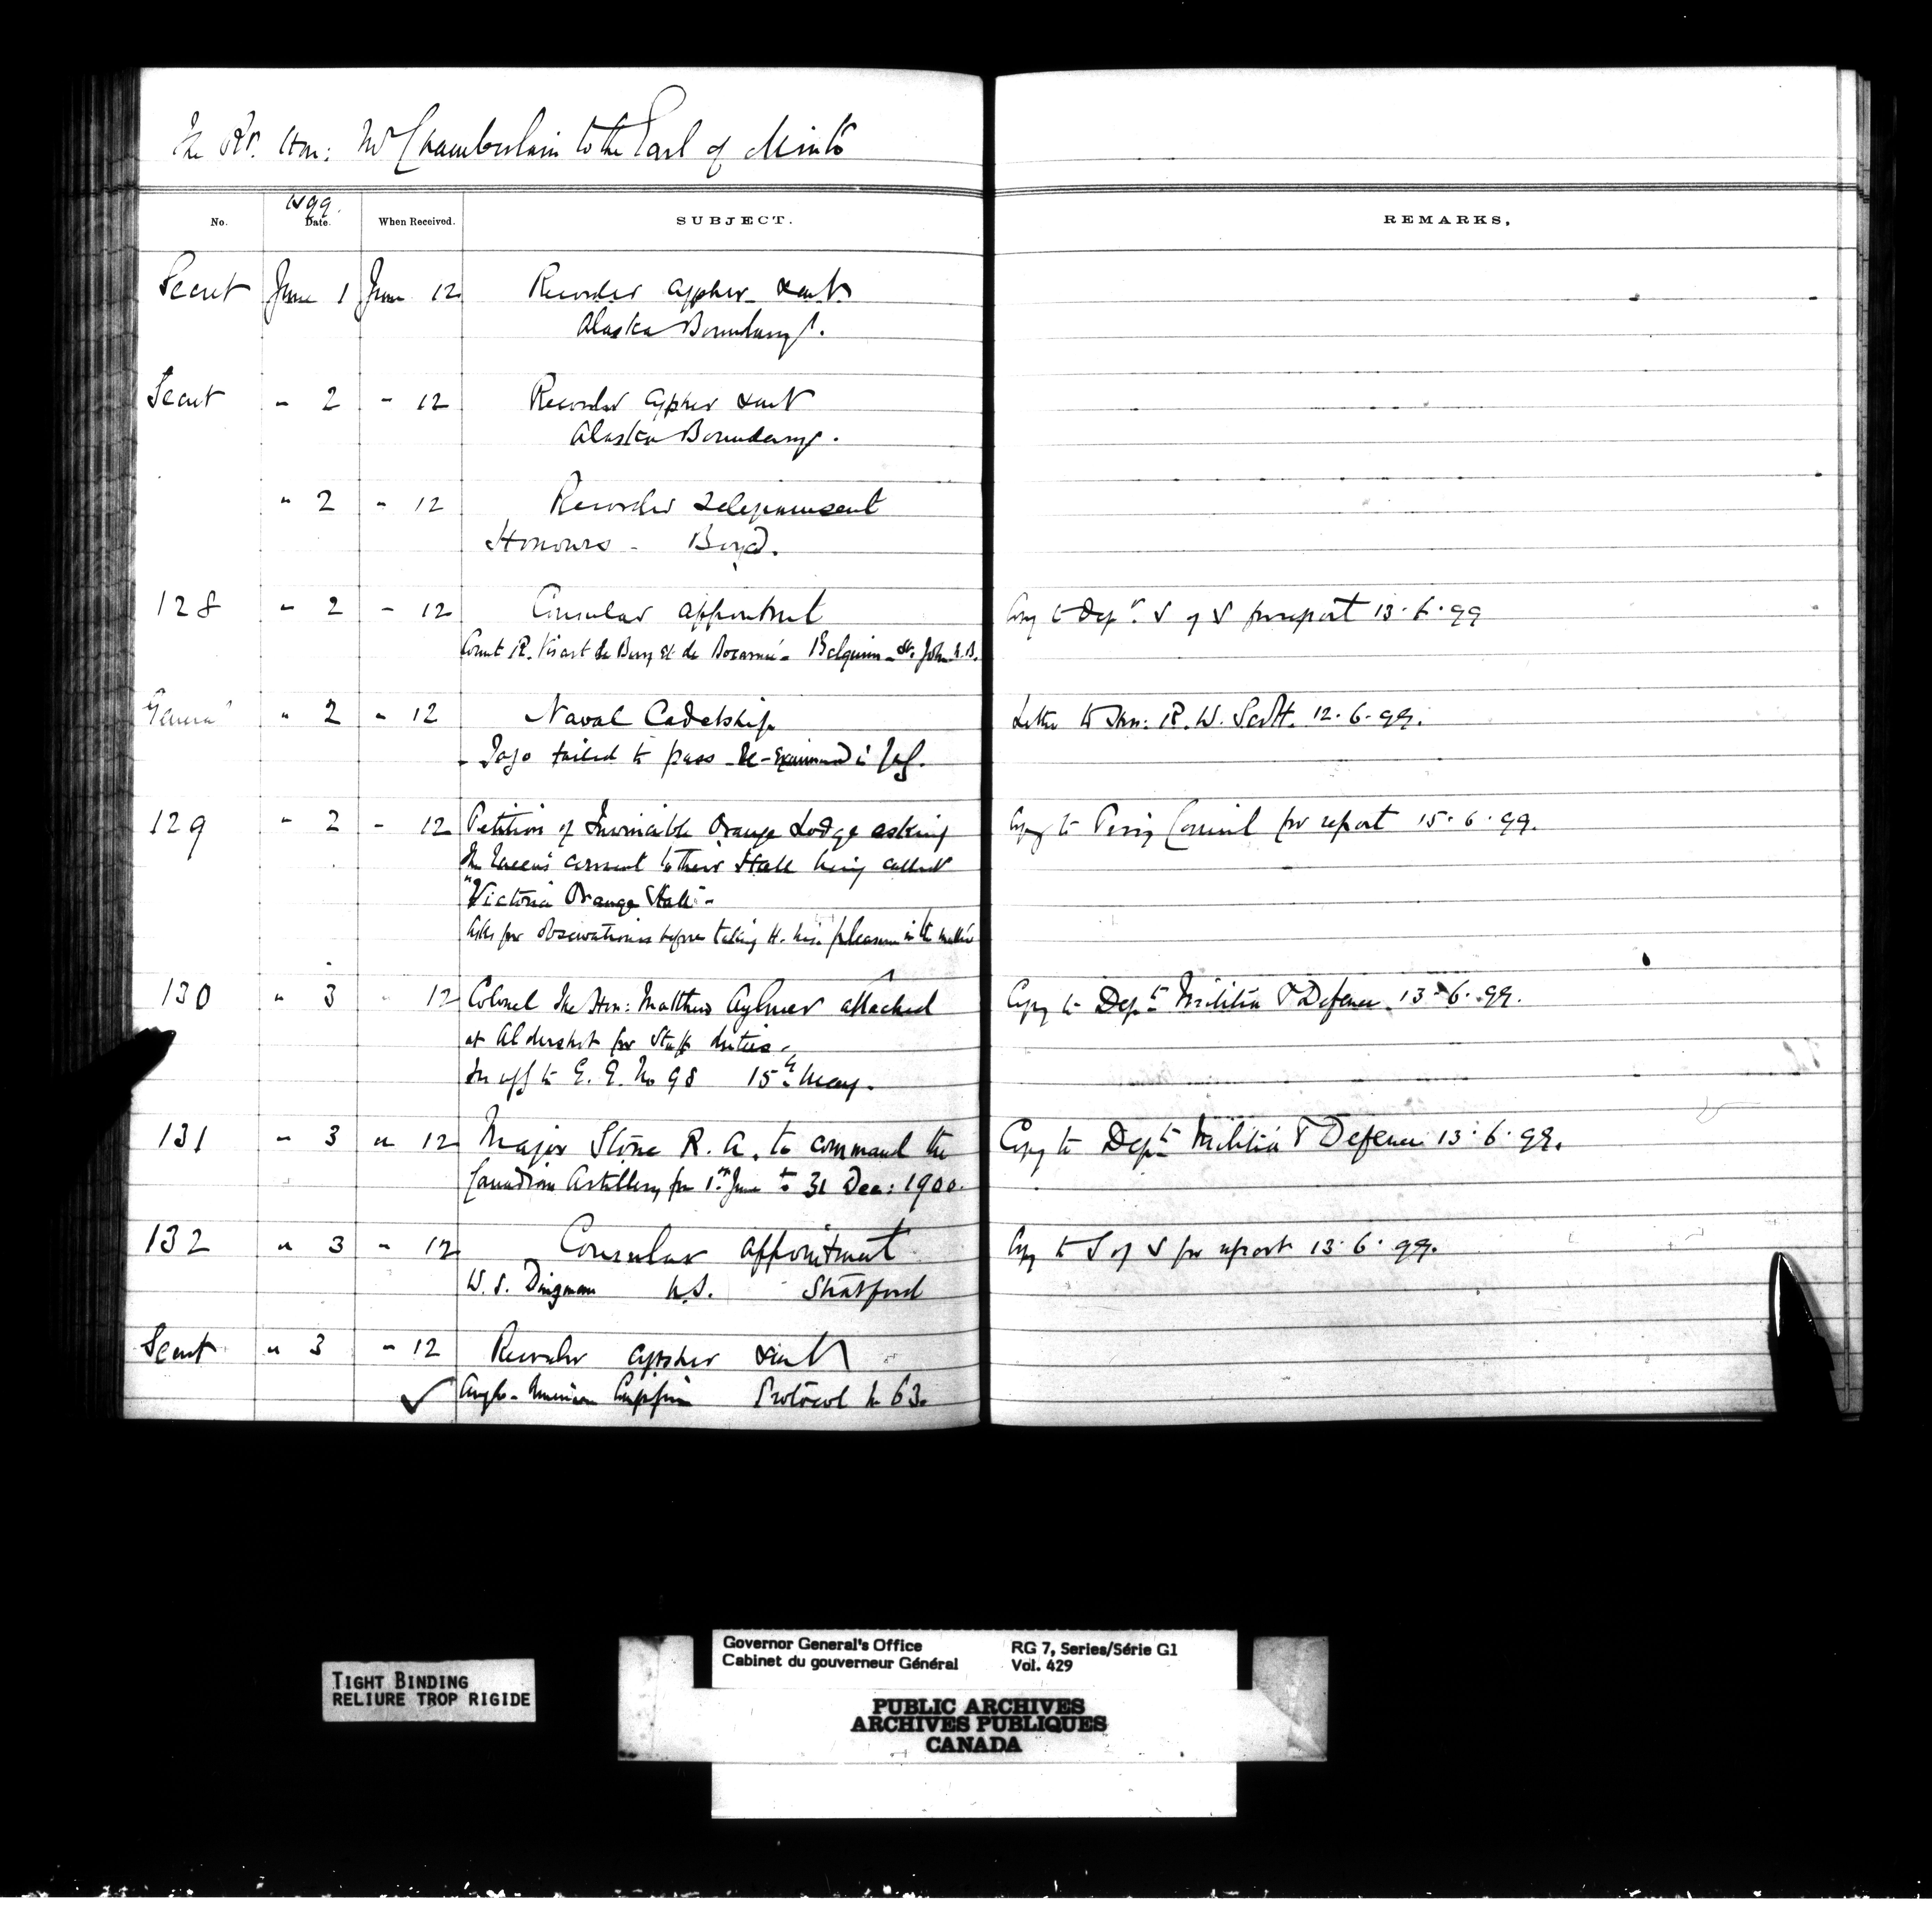 The Rt. Hon: Mr Chamberlain to the Earl of Minto
1899.
No. Date. When Received. SUBJECT. REMARKS.
Secret June 1 June 12 Records cypher sent
Alaska Boundary.
Secret " 2 " 12 Records cypher sent
Alaska Boundary.
" 2 " 12 Records telegram sent
Honours - Boyd.
128 " 2 " 12 Consular appointment Copy to Dept. S of S for report 13.6.99
Count R. Visart de Bury et de Bocarmé - Belgium - St. John N.B.
General " 2 " 12 Naval Cadetship Letter to Hon: R. W. Scott. 12.6.99.
- failed to pass - Re-examined in
129 " 2 " 12 Petition of Invincible Orange Lodge asking Copy to Privy Council for report 15.6.99.
The Queen's consent to their Hall being called
"Victoria Orange Hall" -
Asks for observations before taking H. pleasure in the matter
130 " 3 " 12 Colonel The Hon: Matthew Aylmer attached Copy to Dept Militia & Defence 13.6.99.
at Aldershot for Staff duties -
to G. G. No 98 15th May.
131 " 3 " 12 Major Stone R. A. to command the Copy to Dept Militia & Defence 13.6.99.
Canadian Artillery from 1st June to 31 Dec: 1900.
132 " 3 " 12 Consular appointment Copy to S of S for report 13.6.99.
W. S. Dingman U.S. Stratford
Secret " 3 " 12 Records cypher sent
Anglo-American Protocol No 63.
TIGHT BINDING
RELIURE TROP RIGIDE
Governor General's Office RG 7, Series/Série G1
Cabinet du gouverneur Général Vol. 429
PUBLIC ARCHIVES
ARCHIVES PUBLIQUES
CANADA